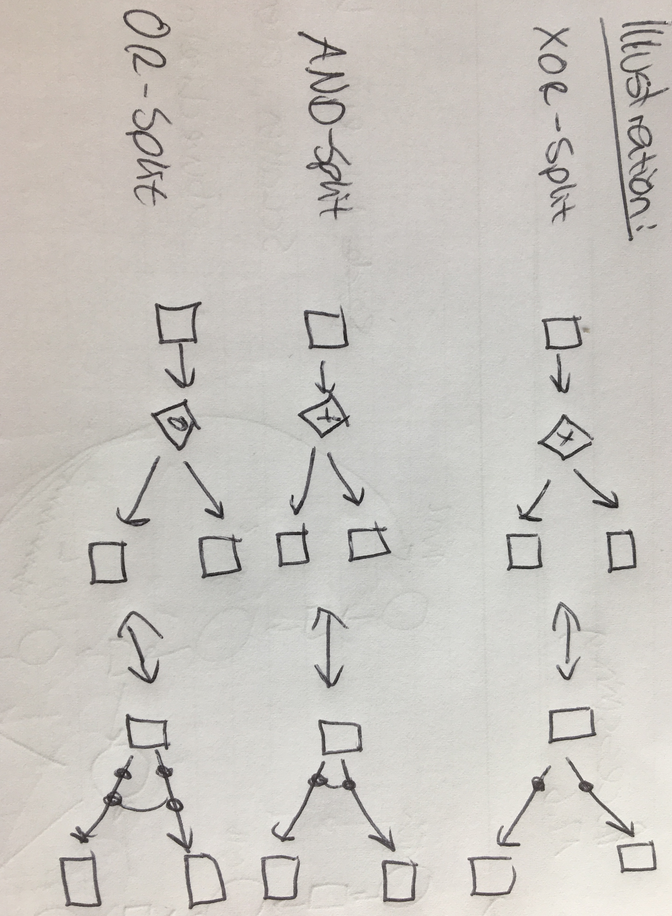 Illustration:
XOR-Split
AND-Split
OR-Split